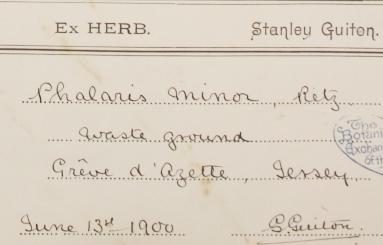 Ex HERB. Stanley Guiton.
Phalaris minor, Retz.
Waste ground
Grève d'Azette, Jersey.
The
Botani
Exchan
of th
June 13th 1900 S. Guiton.